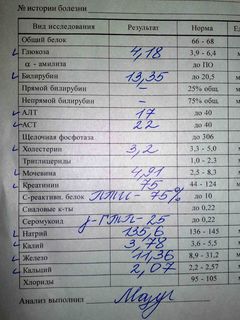 № истории болезни
Вид исследования Результат Норма Е
Общий белок 66 - 68
Глюкоза 4,18 3,9 - 6,4
α - амилиза до ПО
Билирубин 13,35 до 20,5
Прямой билирубин – 25% общ.
Непрямой билирубин – 75% общ.
АЛТ 17 до 40
АСТ 22 до 40
Щелочная фосфотаза до 306
Холестерин 3,2 3,3 - 5,0
Триглицериды 1,0 - 2,3
Мочевина 4,91 2,5 - 8,3
Креатинин 75 44 - 124
С-реактивн. белок ПТИ - 75% до 10
Сиаловые к-ты до 0,22
Серомукоид γ-ГТП-25 до 0,22
Натрий 135,6 136 - 145
Калий 3,78 3,6 - 5,5
Железо 11,36 8,9 - 31,2
Кальций 2,07 2,2 - 2,57
Хлориды 95 - 105
Анализ выполнил